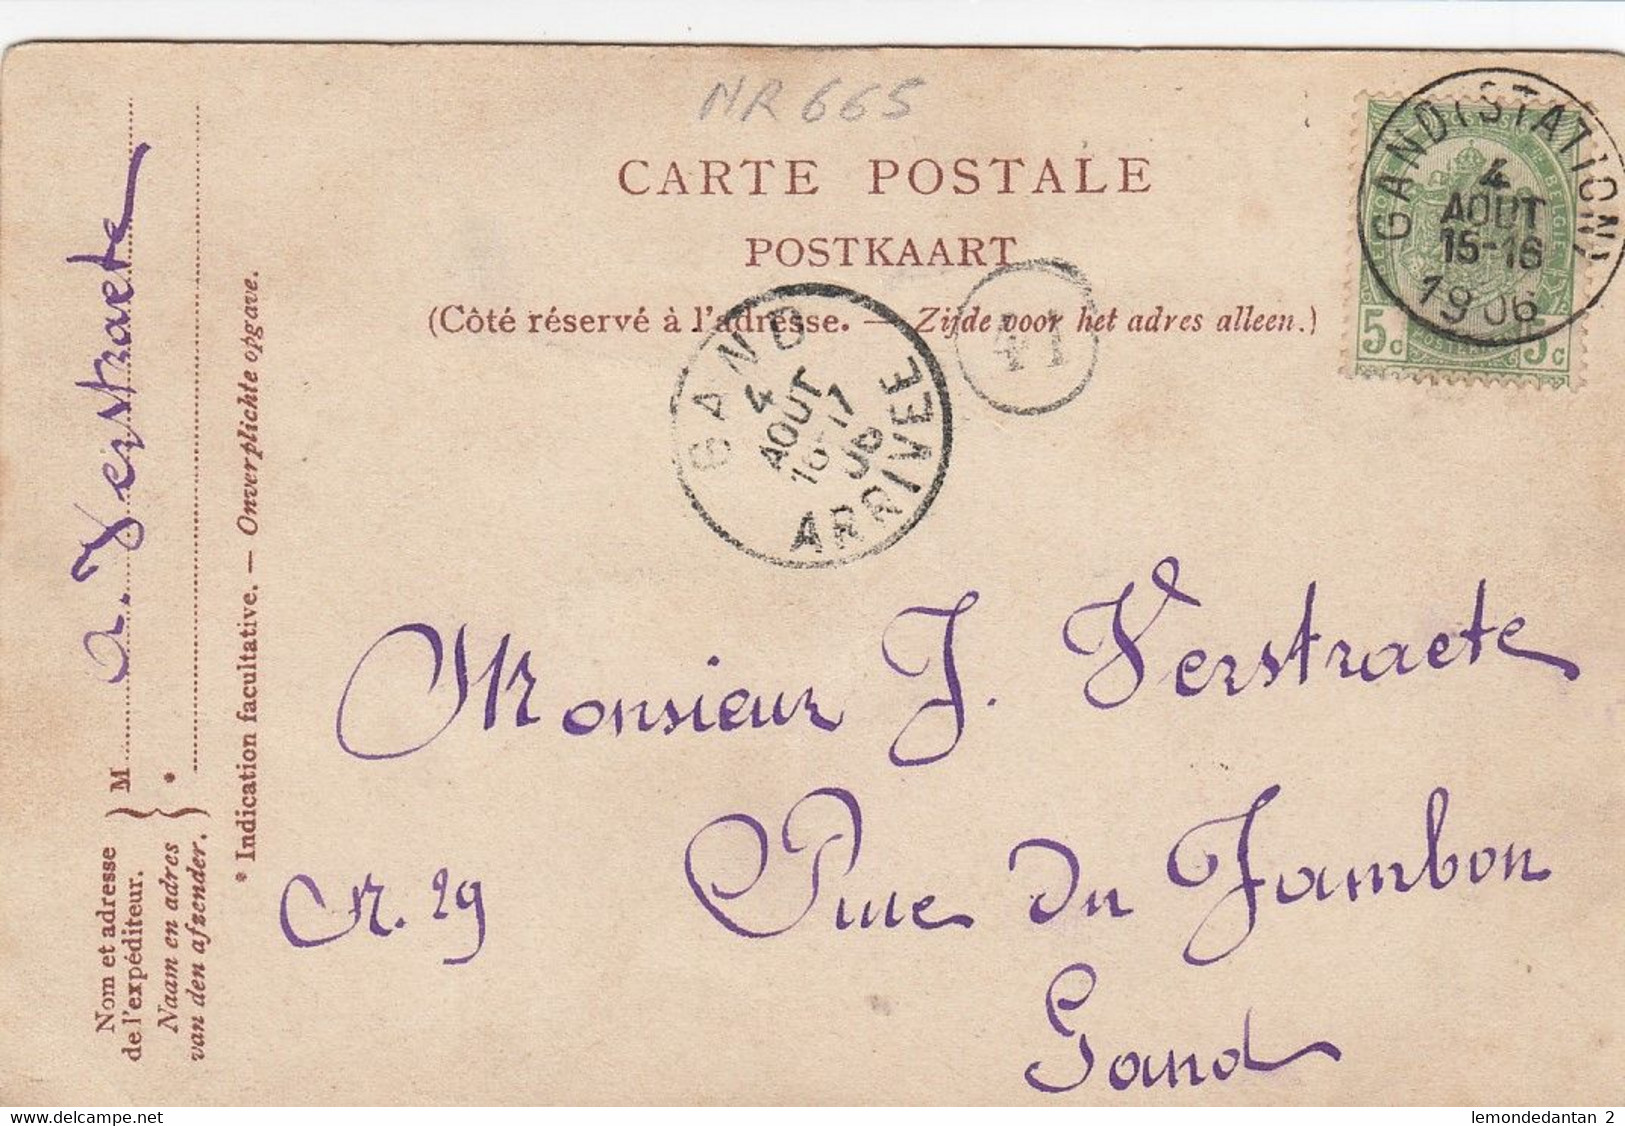 NR 665
CARTE POSTALE
POSTKAART
(Côté réservé à l'adresse. — Zijde voor het adres alleen.)
GAND (STATION)
4
AOUT
15-16
1906
5c 5c
GAND
4
AOUT
16-17
06
ARRIVEE
41
Monsieur J. Verstraete
N. 29 Rue du Jambon
Gand
Nom et adresse
de l'expéditeur.
Naam en adres
van den afzender.
M a. Verstraete
*
* Indication facultative. — Onverplichte opgave.
www.delcampe.net
lemondedantan 2